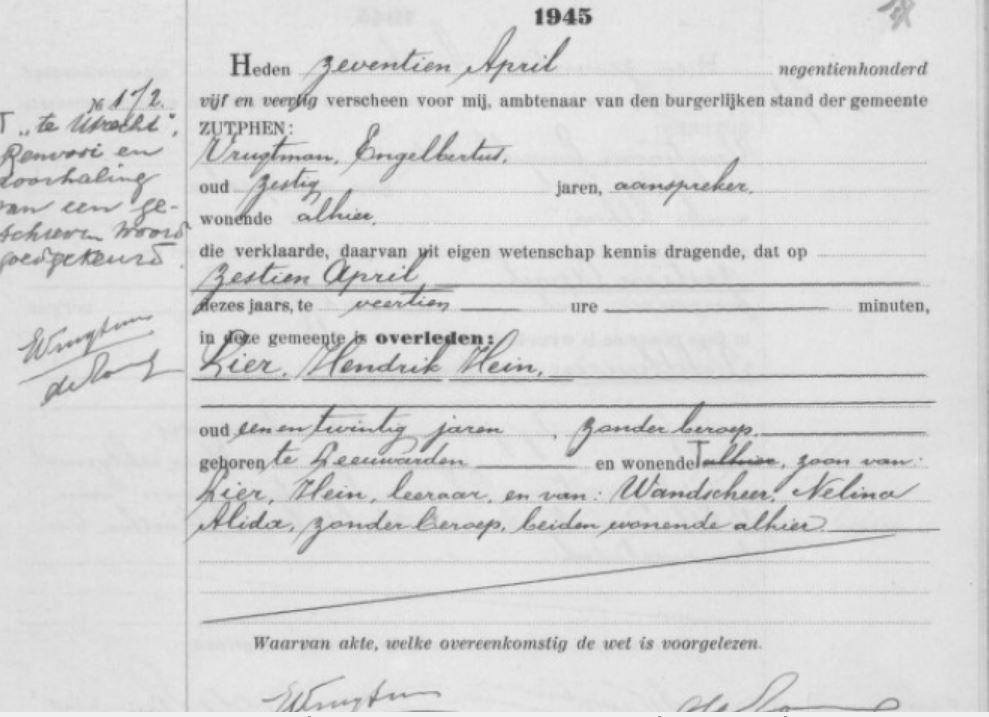 1945
Heden zeventien April negentienhonderd
vijf en veertig verscheen voor mij, ambtenaar van den burgerlijken stand der gemeente
ZUTPHEN:
Vrugtman, Engelbertus,
oud zestig jaren, aanspreker,
wonende alhier,
die verklaarde, daarvan uit eigen wetenschap kennis dragende, dat op
zestien April
dezes jaars, te veertien ure minuten,
in deze gemeente is overleden:
Lier, Hendrik Hein,
oud een en twintig jaren, zonder beroep,
geboren te Leeuwarden en wonende T alhier, zoon van:
Lier, Hein, leeraar, en van: Wandscheer, Nelina
Alida, zonder beroep, beiden wonende alhier.
Waarvan akte, welke overeenkomstig de wet is voorgelezen.
EVrugtman
№ 172.
T „te Utrecht",
Renvooi en
doorhaling
van een ge-
schreven woord
goedgekeurd
EVrugtman